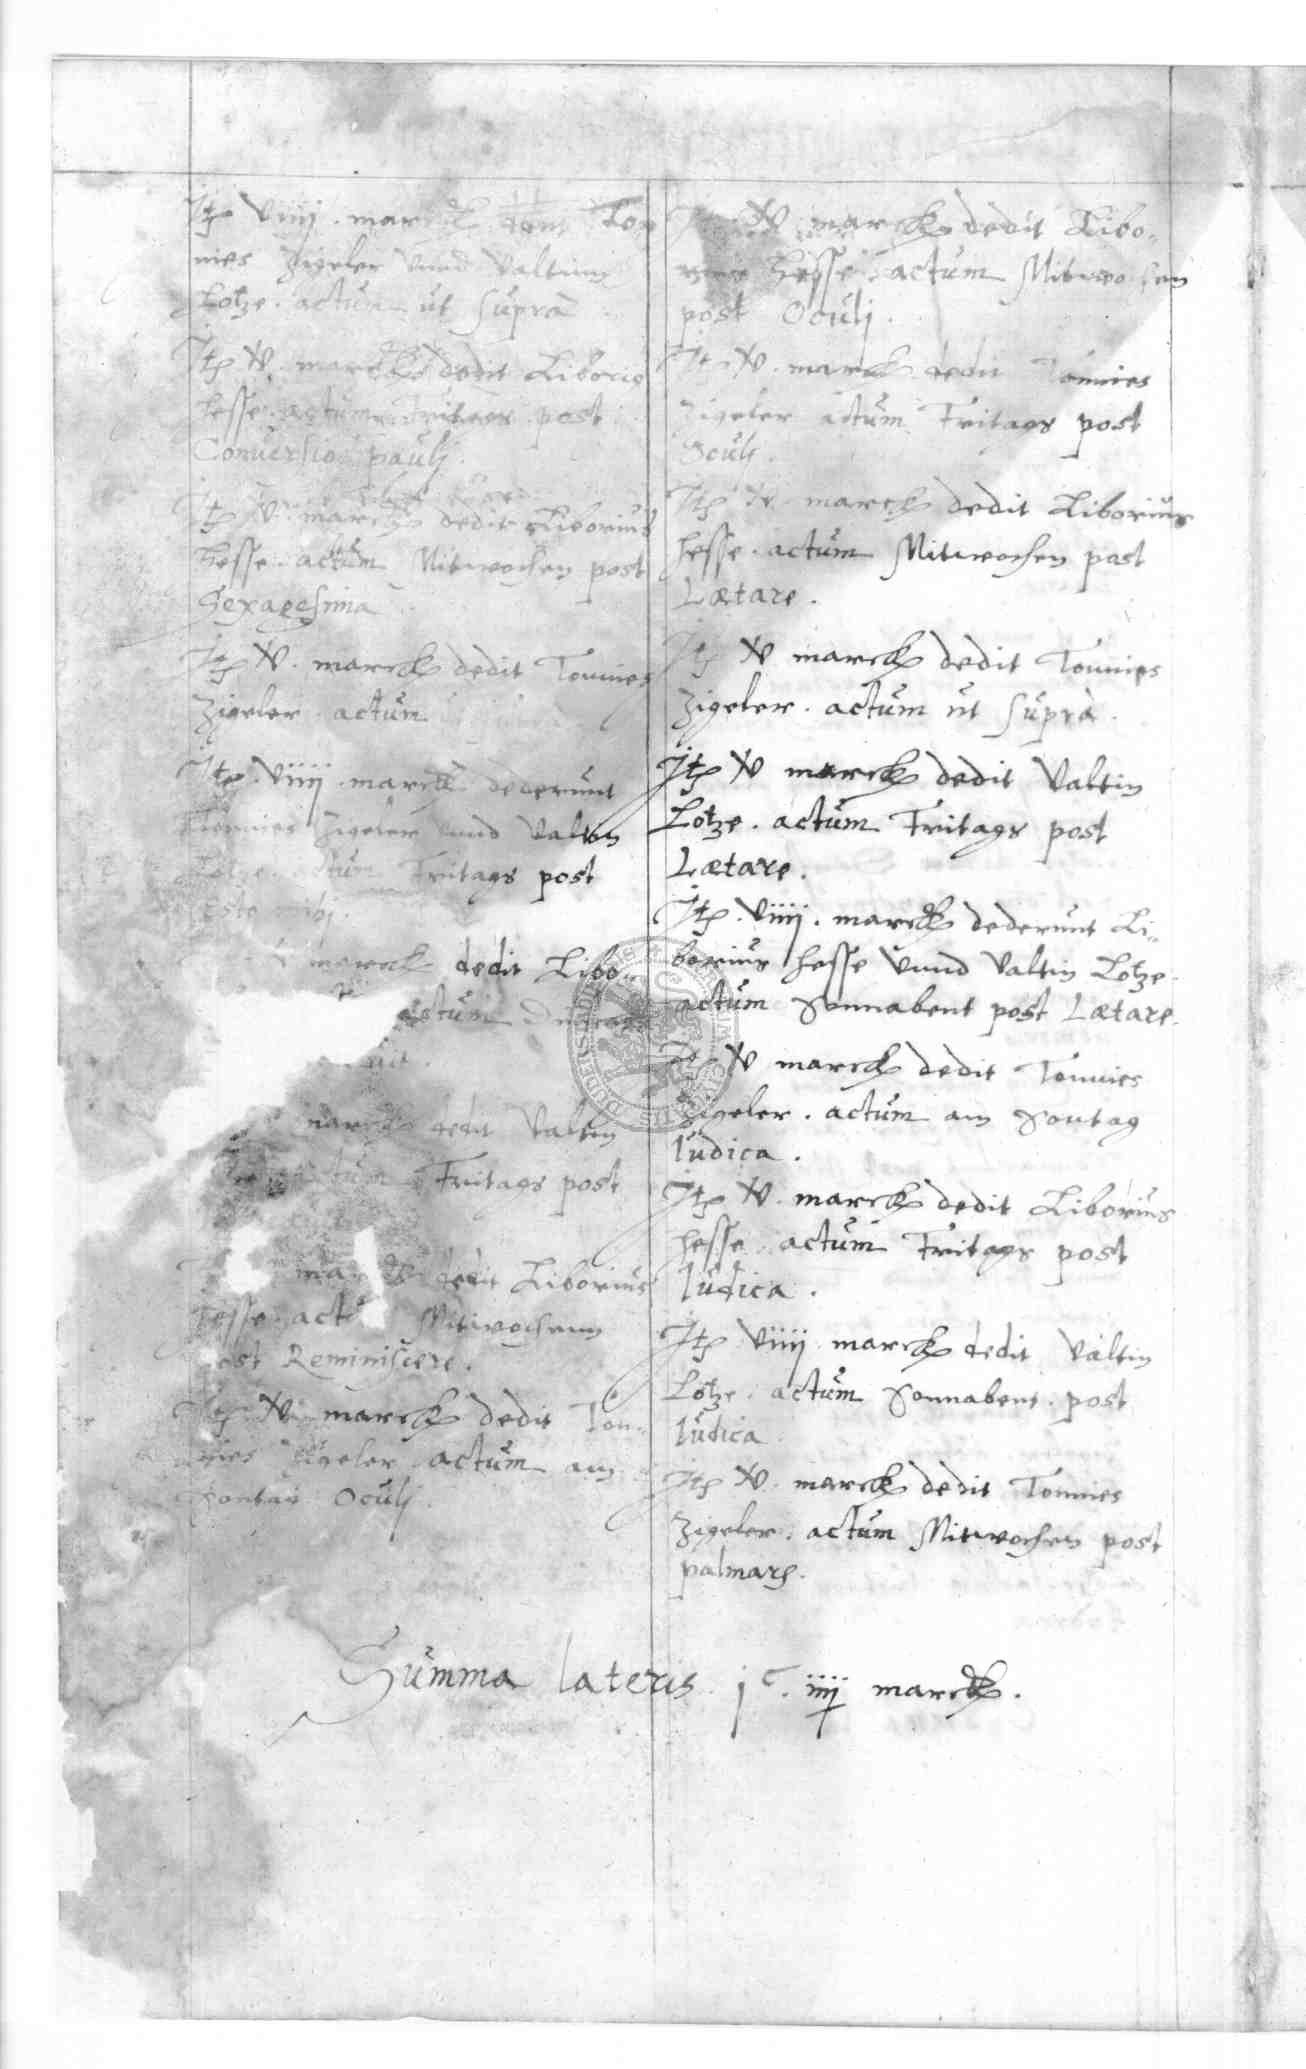 Jtē viiij. marck Ton
nies Zigeler vnnd Valtinn
Lotze. actum ut supra
Jtē v. marck dedit Liborio
Hesse. actum Fritags post
Conuersio pauli.
Jtē v. marck dedit Liborius
Hesse. actum Mitwochen post
Sexagesima
Jtē v. marck dedit Tonnies
Zigeler. actum
Jtē. viiij. marck dederunt
Tonnies Zigeler vnnd Valtin
Lotze. actum Fritags post
esto mihi.
marck dedit Libo-
actum
marck dedit Valtin
actum Fritags post
marck dedit Liborius
Hesse. actu Mitwochenn
post Reminiscere.
Jtē v. marck dedit Ton-
nies Zigeler actum am
Sontag Oculi.
v marck dedit Libo-
rius Hesse. actum Mitwochen
post Oculi.
Jtē v. marck dedit Tonnies
Zigeler actum Fritags post
Oculi.
Jtē v. marck dedit Liborius
Hesse. actum Mitwochen post
Lætare.
Jtē v marck dedit Tonnies
Zigeler. actum ut supra.
Jtē v marck dedit Valtin
Lotze. actum Fritags post
Lætare.
Jtē. viiij. marck dederunt Li-
borius Hesse vnnd Valtin Lotze.
actum Sonnabent post Lætare.
Jtē v marck dedit Tonnies
Zigeler. actum am Sontag
Iudica.
Jtē v. marck dedit Liborius
Hesse. actum Fritags post
Iudica.
Jtē viiij marck dedit Valtin
Lotze. actum Sonnabent. post
Iudica
Jtē v. marck dedit Tonnies
Zigeler. actum Mitwochen post
palmarū.
Summa lateris j c. iiij marck.